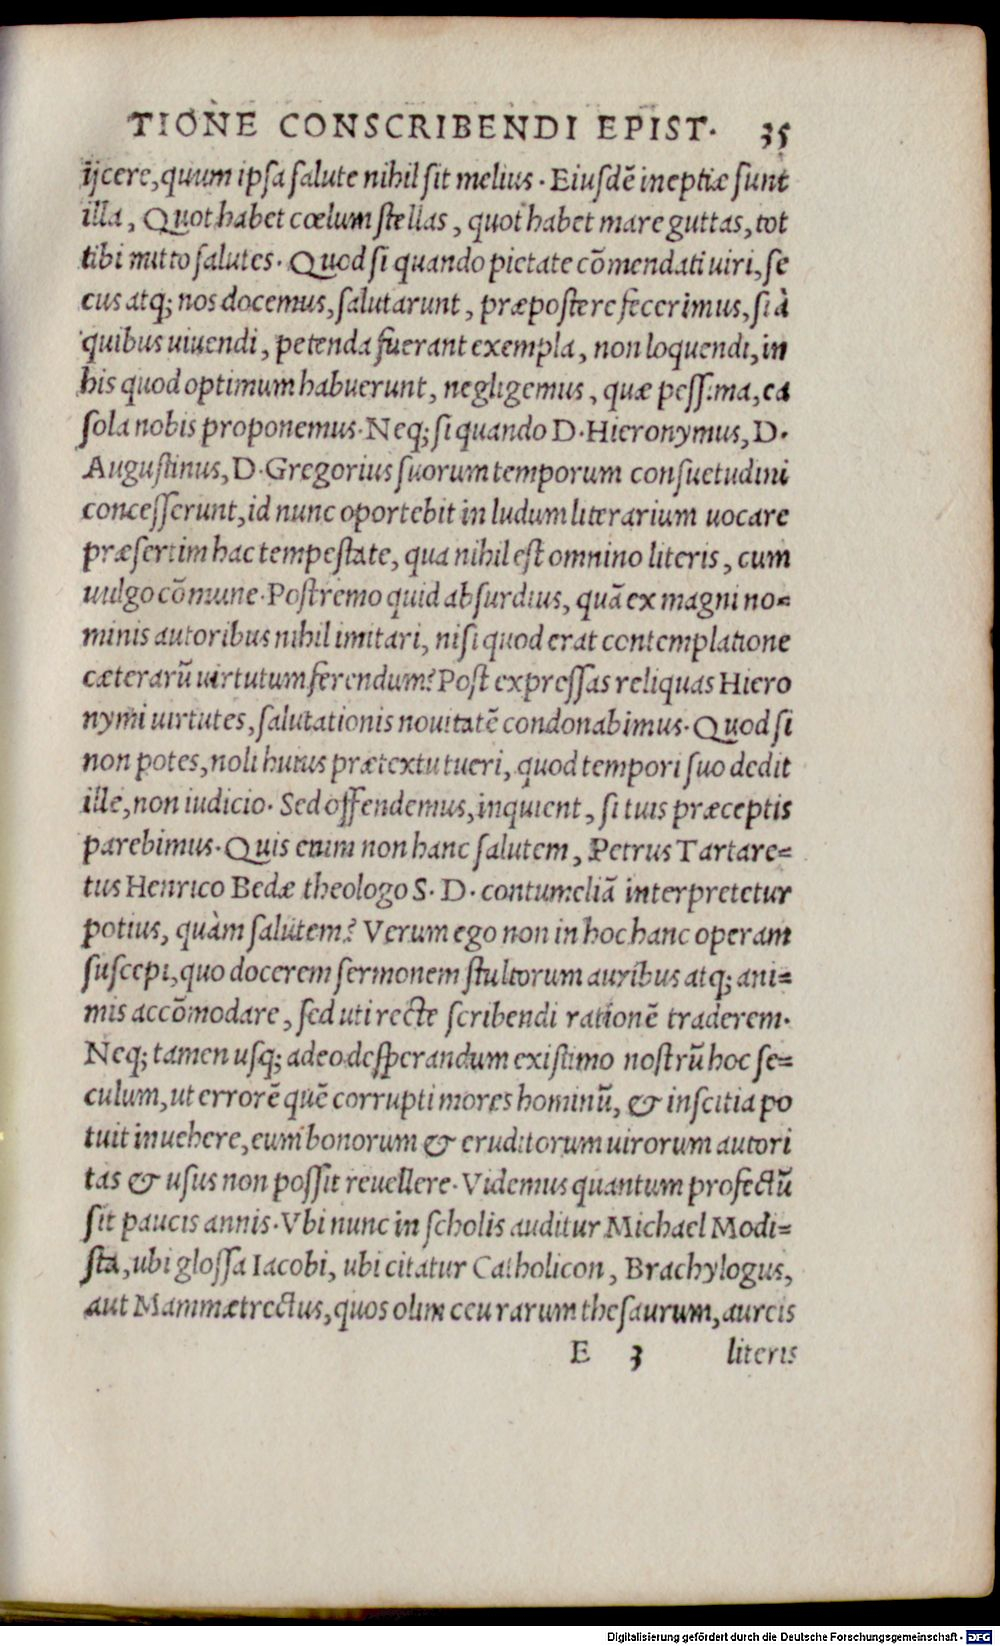 TIONE CONSCRIBENDI EPIST. 35
ijcere, quum ipsa salute nihil sit melius. Eiusdẽ ineptiæ sunt
illa, Quot habet cœlum stellas, quot habet mare guttas, tot
tibi mitto salutes. Quod si quando pietate cõmendati uiri, se
cus atq; nos docemus, salutarunt, præpostere fecerimus, si à
quibus uiuendi, petenda fuerant exempla, non loquendi, in
his quod optimum habuerunt, negligemus, quæ pessima, ea
sola nobis proponemus. Neq; si quando D. Hieronymus, D.
Augustinus, D. Gregorius suorum temporum consuetudini
concesserunt, id nunc oportebit in ludum literarium uocare
præsertim hac tempestate, qua nihil est omnino literis, cum
uulgo cõmune. Postremo quid absurdius, quã ex magni no=
minis autoribus nihil imitari, nisi quod erat contemplatione
cæterarũ uirtutum ferendum? Post expressas reliquas Hiero
nymi uirtutes, salutationis nouitatẽ condonabimus. Quod si
non potes, noli huius prætextu tueri, quod tempori suo dedit
ille, non iudicio. Sed offendemus, inquient, si tuis præceptis
parebimus. Quis enim non hanc salutem, Petrus Tartare=
tus Henrico Bedæ theologo S. D. contumeliã interpretetur
potius, quàm salutem? Verum ego non in hoc hanc operam
suscepi, quo docerem sermonem stultorum auribus atq; ani=
mis accõmodare, sed uti recte scribendi rationẽ traderem.
Neq; tamen usq; adeo desperandum existimo nostrũ hoc se=
culum, ut errorẽ quẽ corrupti mores hominũ, & inscitia po
tuit inuehere, eum bonorum & eruditorum uirorum autori
tas & usus non possit reuellere. Videmus quantum profectũ
sit paucis annis. Vbi nunc in scholis auditur Michael Modi=
sta, ubi glossa Iacobi, ubi citatur Catholicon, Brachylogus,
aut Mammætrectus, quos olim ceu rarum thesaurum, aureis
E 3 literis
Digitalisierung gefördert durch die Deutsche Forschungsgemeinschaft - DFG